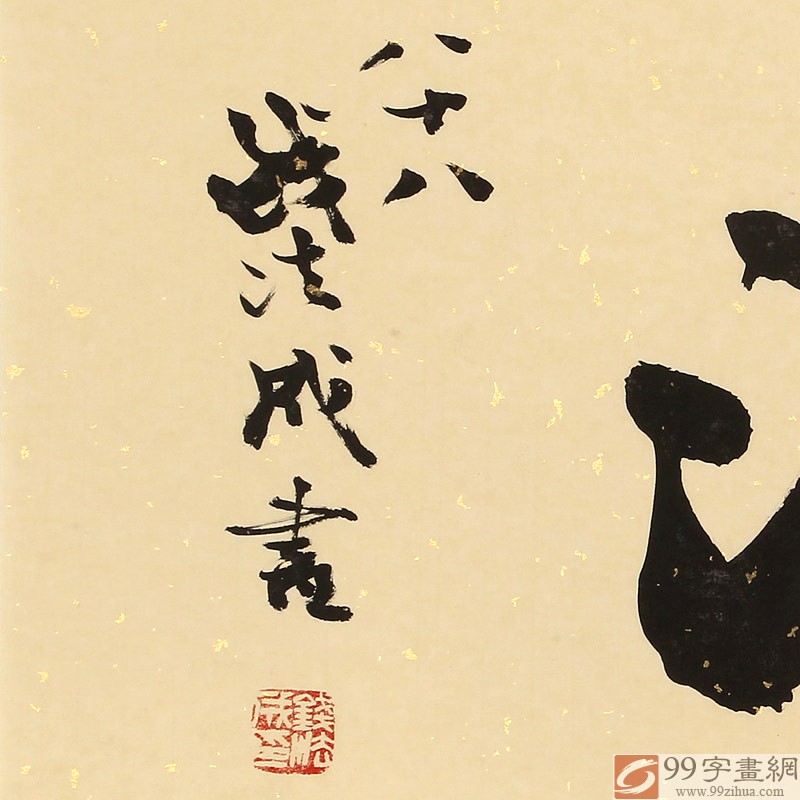 八十八
錢法成書
錢法成印
99字畫網
www.99zihua.com